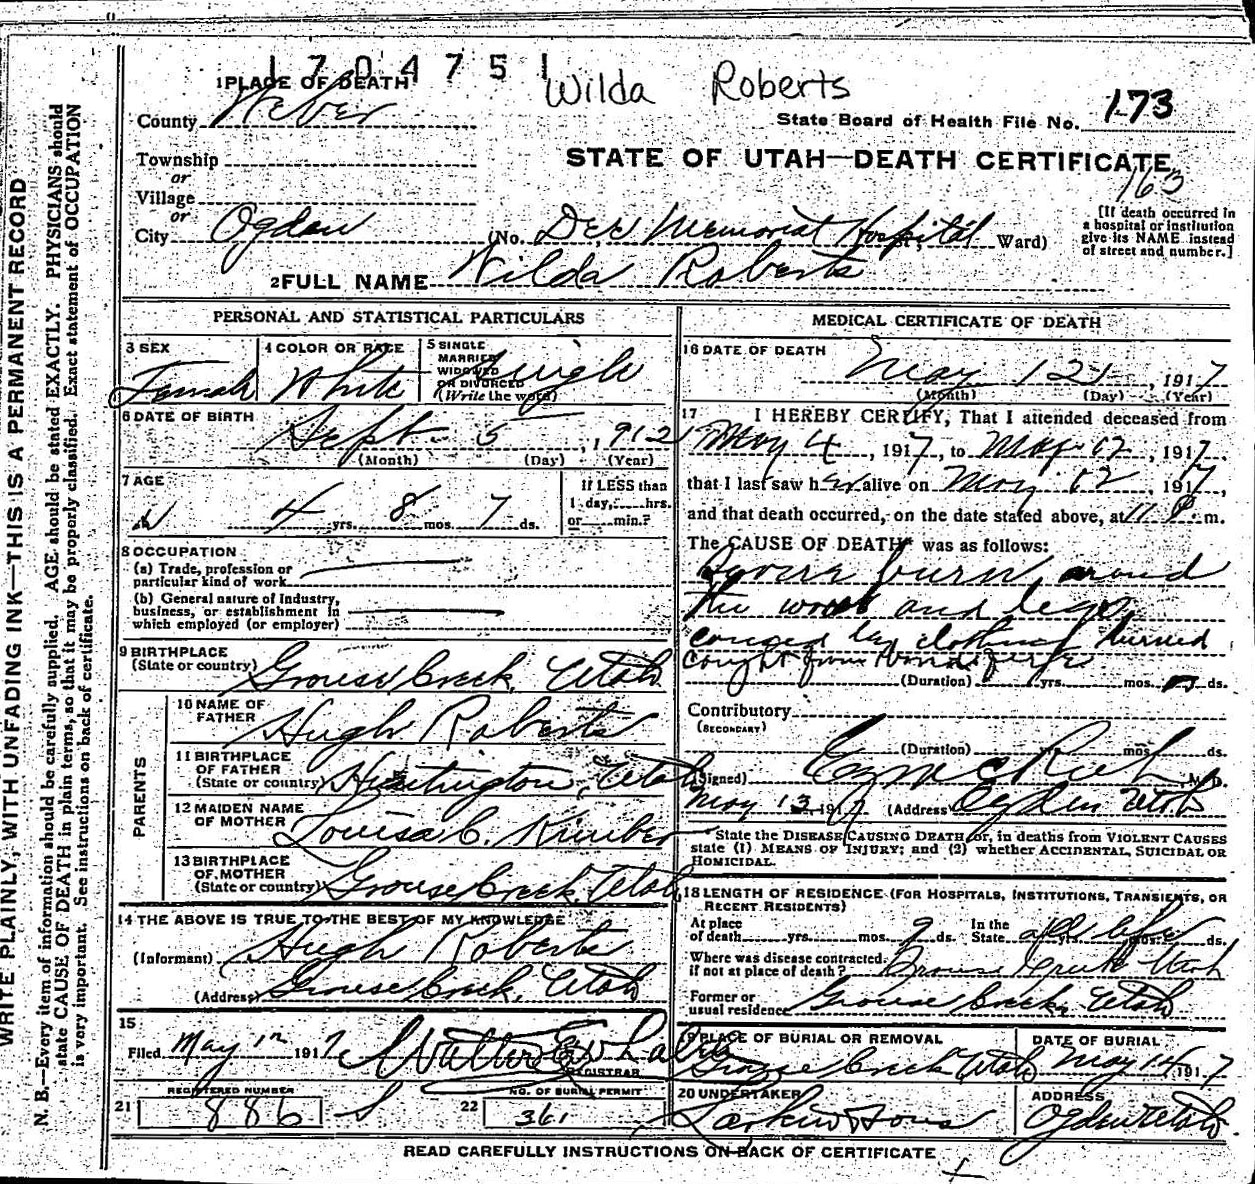 1704751
Wilda Roberts
1 PLACE OF DEATH
County Weber
State Board of Health File No. 173
Township
or
STATE OF UTAH—DEATH CERTIFICATE
163
Village
or
City Ogden (No. Dee Memorial Hospital Ward)
[If death occurred in
a hospital or institution
give its NAME instead
of street and number.]
2 FULL NAME Wilda Roberts
PERSONAL AND STATISTICAL PARTICULARS
3 SEX
Female
4 COLOR OR RACE
White
5 SINGLE
MARRIED
WIDOWED
OR DIVORCED
(Write the word)
Single
6 DATE OF BIRTH
Sept 5, 1912
(Month) (Day) (Year)
7 AGE
4 yrs. 8 mos. 7 ds.
If LESS than
1 day, hrs.
or min.?
8 OCCUPATION
(a) Trade, profession or
particular kind of work
(b) General nature of Industry,
business, or establishment in
which employed (or employer)
9 BIRTHPLACE
(State or country) Grouse Creek, Utah
PARENTS
10 NAME OF
FATHER Hugh Roberts
11 BIRTHPLACE
OF FATHER
(State or country) Huntington, Utah
12 MAIDEN NAME
OF MOTHER Louisa C. Kimber
13 BIRTHPLACE
OF MOTHER
(State or country) Grouse Creek, Utah
14 THE ABOVE IS TRUE TO THE BEST OF MY KNOWLEDGE
(Informant) Hugh Roberts
(Address) Grouse Creek, Utah
15
Filed May 1917 Walter
REGISTRAR
REGISTERED NUMBER
21 886
NO. OF BURIAL PERMIT
22 361
MEDICAL CERTIFICATE OF DEATH
16 DATE OF DEATH
May 12, 1917
(Month) (Day) (Year)
17 I HEREBY CERTIFY, That I attended deceased from
May 4, 1917, to May 12, 1917,
that I last saw her alive on May 12, 1917,
and that death occurred, on the date stated above, at 11 P. m.
The CAUSE OF DEATH* was as follows:
Severe burn, around
the and legs,
caused by clothing burned
caught from
(Duration) yrs. mos. ds.
Contributory
(SECONDARY)
(Duration) yrs. mos. ds.
(Signed) Rich M. D.
May 13, 1917 (Address) Ogden Utah
*State the DISEASE CAUSING DEATH, or, in deaths from VIOLENT CAUSES
state (1) MEANS OF INJURY; and (2) whether ACCIDENTAL, SUICIDAL OR
HOMICIDAL.
18 LENGTH OF RESIDENCE (FOR HOSPITALS, INSTITUTIONS, TRANSIENTS, OR
RECENT RESIDENTS)
At place
of death yrs. mos. 9 ds. In the
State all life yrs. mos. ds.
Where was disease contracted,
if not at place of death? Grouse Creek Utah
Former or
usual residence Grouse Creek, Utah
19 PLACE OF BURIAL OR REMOVAL
Grouse Creek Utah
DATE OF BURIAL
May 14, 1917
20 UNDERTAKER
Larkin & Sons
ADDRESS
Ogden Utah
READ CAREFULLY INSTRUCTIONS ON BACK OF CERTIFICATE
WRITE PLAINLY, WITH UNFADING INK—THIS IS A PERMANENT RECORD
N. B.—Every item of information should be carefully supplied. AGE should be stated EXACTLY. PHYSICIANS should
state CAUSE OF DEATH in plain terms, so that it may be properly classified. Exact statement of OCCUPATION
is very important. See instructions on back of certificate.